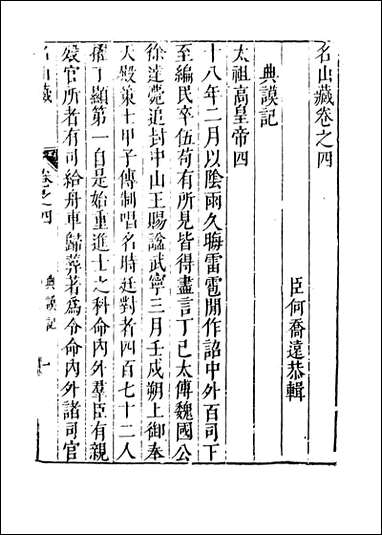 名山藏卷之四
臣何喬遠恭輯
典謨記
太祖高皇帝四
十八年二月以陰雨久晦雷電閒作詔中外百司下
至編民卒伍苟有所見皆得盡言丁巳太傅魏國公
徐達薨追封中山王賜諡武寧三月壬戌朔上御奉
天殿策士甲子傳制唱名時廷對者四百七十二人
擢丁顯第一自是始重進士之科命內外羣臣有親
歿官所者有司給舟車歸葬著為令命內外諸司官
名山藏
卷之四
典謨記
一